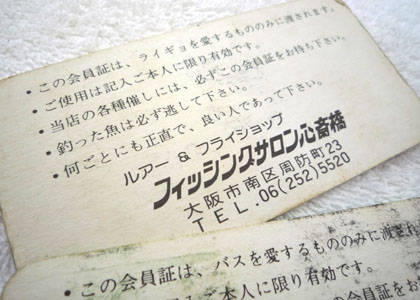 ・この会員証は、ライギョを愛するもののみに渡されます。
・ご使用は記入ご本人に限り有効です。
・当店の各種催しには、必ずこの会員証をお持ち下さい。
・釣った魚は必ず逃して下さい。
・何ごとにも正直で、良い人であって下さい。
ルアー & フライショップ
フィッシングサロン心斎橋
大阪市南区周防町23
TEL.06(252)5520
・この会員証は、バスを愛するもののみに渡され
記入ご本人に限り有効です。